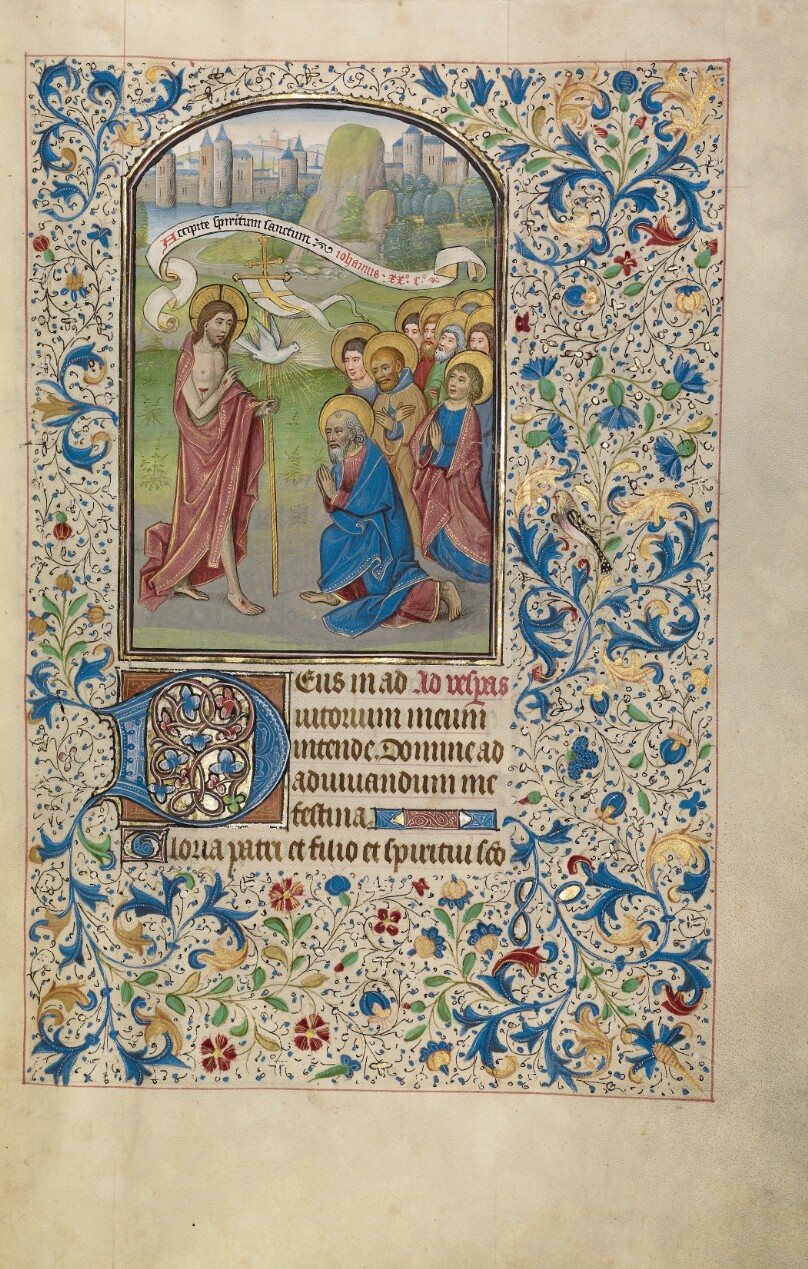 Accipite spiritum sanctum. iohannis. xx°. c°.
Deus in ad Ad vesp̄as
iutorium meum
intende. Domine ad
adiuuandum me
festina.
Gloria patri et filio et spiritui sc̄o